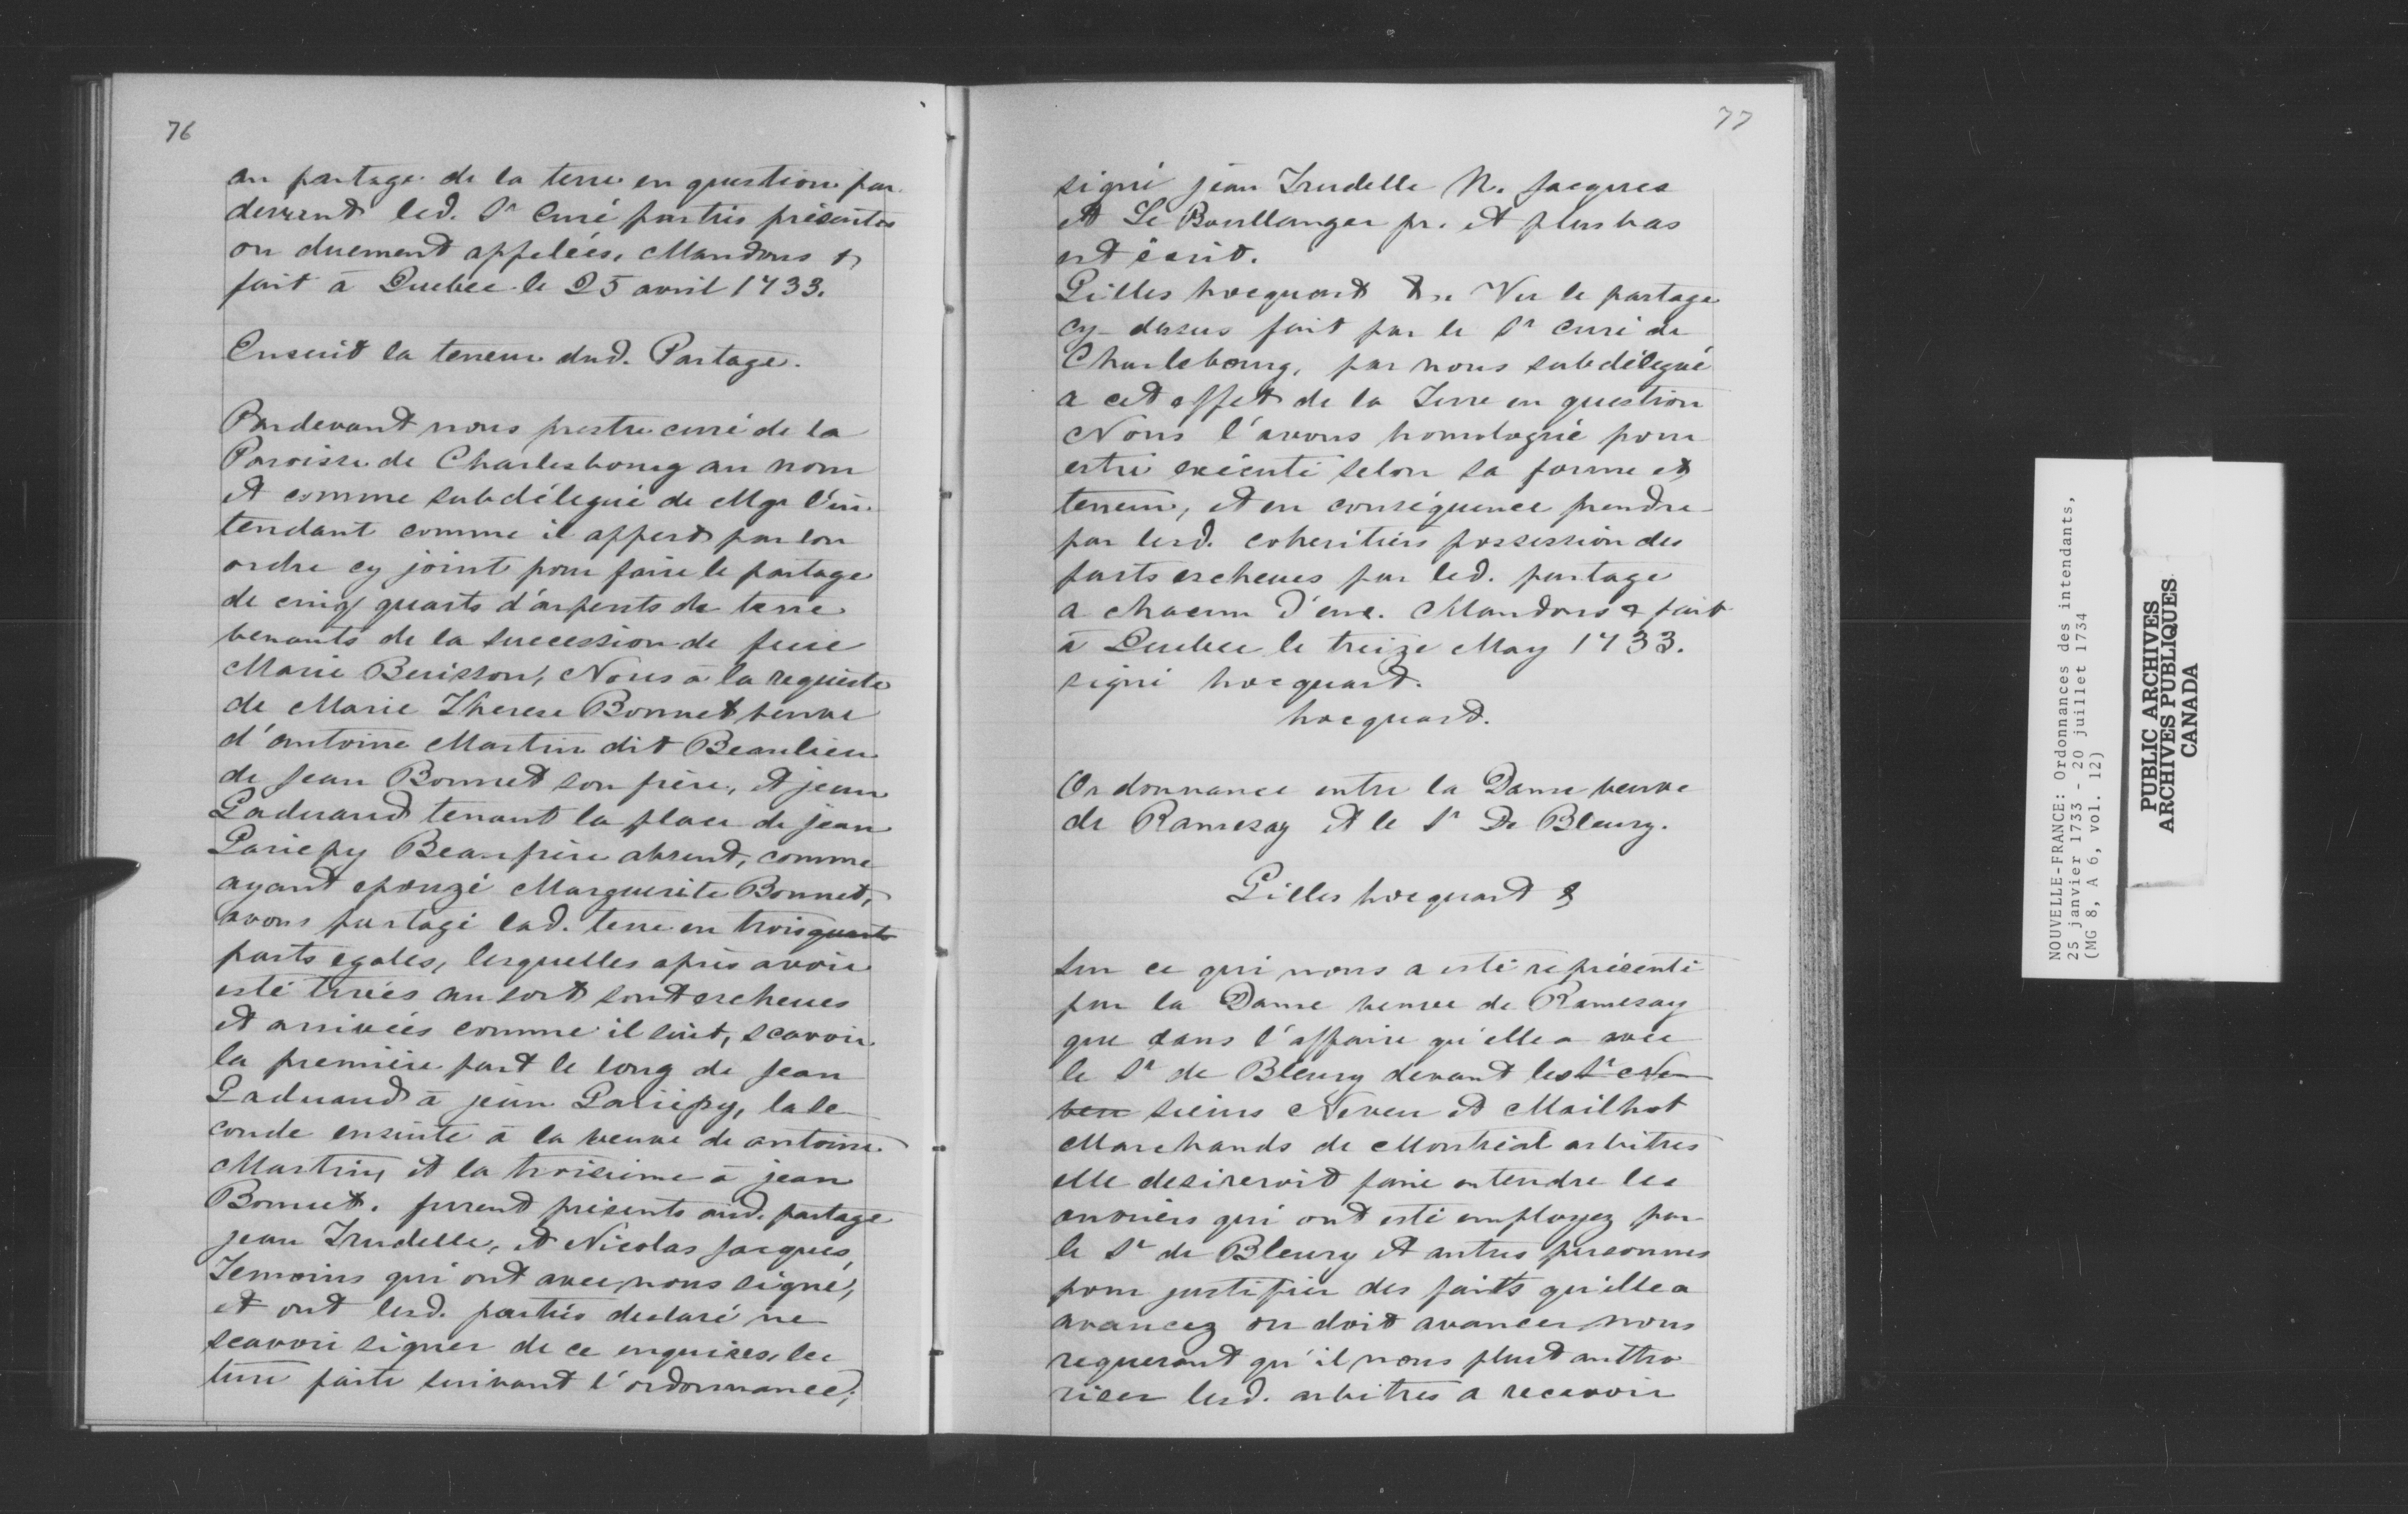 76
au partage de la terre en question par
devant led. Sr Curé parties présentes
ou duement appelées. Mandons &
fait à Quebec le 25 avril 1733.
Ensuit la teneur dud. Partage.
Pardevant nous prestre curé de la
Paroisse de Charlesbourg au nom
et comme subdélegué de Mgr l'in-
tendant comme il appert par son
ordre cy joint pour faire le partage
de cinq quarts d'arpents de terre
venants de la succession de feue
Marie Buisson, Nous à la requeste
de Marie Therese Bonnet veuve
d'antoine Martin dit Beaulieu
de Jean Bonnet son frère, et jean
Paduaud tenant la place de jean
Pariepy Beaufrère absent, comme
ayant epouzé Marguerite Bonnet,
avons partagé lad. terre en trois quarts
parts egales, lesquelles après avoir
esté tirées au sort sont escheues
et arrivées comme il suit, scavoir
la première part le long de Jean
Paduaud à jean Pariépy, la se
conde ensuite à la veuve de antoine
Martin, et la troisieme à jean
Bonnet. furent présents aud. partage
jean Trudelle, et Nicolas Jacques,
Temoins qui ont avec nous signé,
et ont lesd. parties declaré ne
scavoir signer de ce enquises, lec
ture faite suivant l'ordonnance;
77
signé jean Trudelle N. Jacques
et Le Boullanger pr. et plus bas
est écrit.
Gilles hocquart &a Vu le partage
cy-dessus fait par le Sr curé de
Charlebourg, par nous subdélegué
a cet effet de la Terre en question
Nous l'avons homologué pour
estre exécuté selon sa forme et
teneur, et en conséquence prendre
par lesd. coheritiers possession des
parts escheues par led. partage
a chacun d'eux. Mandons & fait
à Quebec le treize May 1733.
signé hocquart.
hocquart.
Ordonnance entre la Dame veuve
de Ramesay et le Sr De Bleury.
Gilles hocquart &
Sur ce qui nous a esté représenté
par la Dame veuve de Ramesay
que dans l'affaire qu'elle a avec
le Sr de Bleury devant les Sr Ne
veu sieurs Neveu et Mailhot
Marchands de Montréal arbitres
elle desireroit faire entendre les
ouvriers qui ont esté employez par
le Sr de Bleury et autres personnes
pour justifier des faits qu'elle a
avancez ou doit avancer nous
requerant qu'il nous plust autho
riser lesd. arbitres a recevoir
NOUVELLE-FRANCE: Ordonnances des intendants,
25 janvier 1733 - 20 juillet 1734
(MG 8, A 6, vol. 12)
PUBLIC ARCHIVES
ARCHIVES PUBLIQUES
CANADA